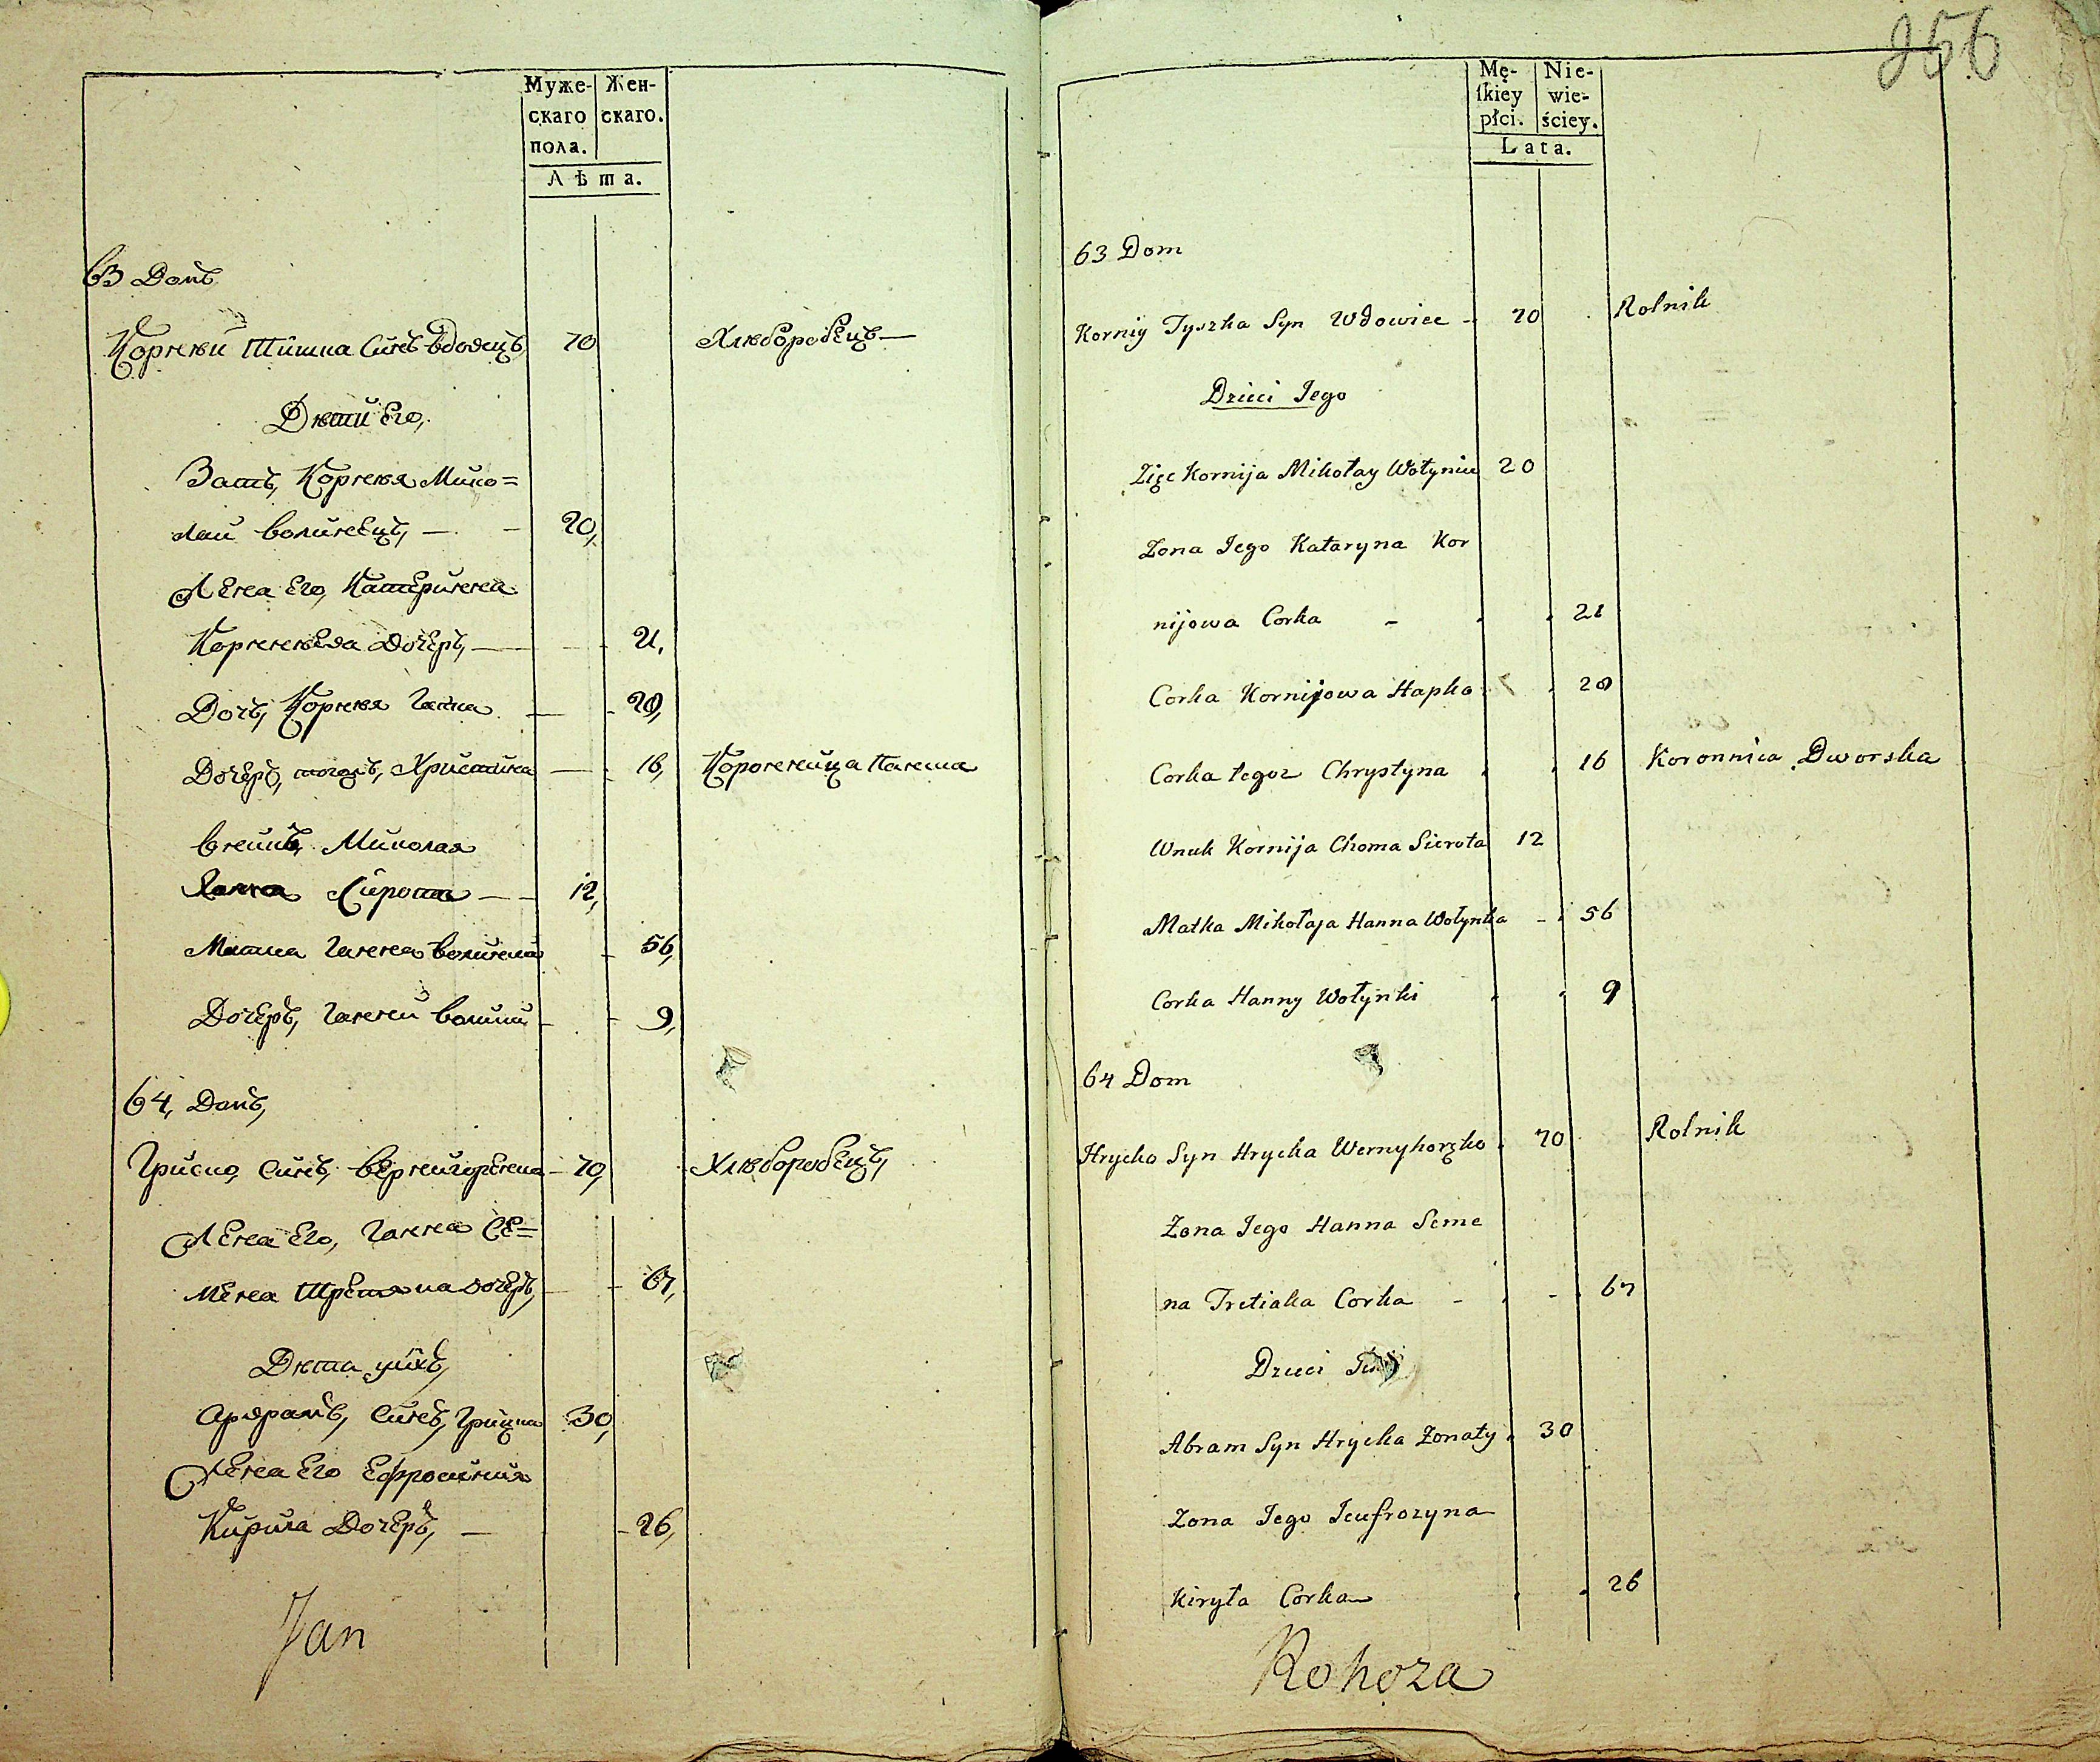 Муже-
скаго
пола.
Жен-
скаго.
Лѣта.
63 Домъ
Корнѣй Тишка Синъ вдовецъ 70 Хлѣборобецъ
Дѣти Его,
Зать, Корнѣя Мико=
лай волинецъ, 20,
Жена Его, Катеринна
Корнеева Дочеръ, 21,
Дочъ, Корнѣя Гапка 20,
Дочеръ, тогожъ, Христина 16, Коронница
внукъ, Миколая
Сирота 12,
Матка Ганна волинка 56,
Дочеръ, Ганни волинки 9,
64, Домъ,
Гриско, Синъ, вернигоренка 70, Хлѣборобецъ,
Жена Его, Ганна Се=
мена Третяка дочеръ, 67,
Дѣти ихъ,
Синъ, Грицка 30,
Жена Его Ефросиния
Кирила Дочеръ, 26,
Jan
256
Mę-
ſkiey
płci.
Nie-
wie-
ściey.
Lata.
63 Dom
Korniy Tyszka Syn Wdowiec 70 Rolnik
Dzieci Jego
Zięc Kornija Mikołay Wołyniec 20
Zona Jego Kataryna Kor
nijowa Corka 21
Corka Kornijowa Hapka 20
Corka tegoz Chrystyna 16 Koronnica Dworska
Wnuk Kornija Choma Sierota 12
Matka Mikołaja Hanna Wołynka 56
Corka Hanny Wołynki 9
64 Dom
Hrycko Syn Hrycka Wernyhorzko 70 Rolnik
Zona Jego Hanna Seme
na Tretiaka Corka 67
Dzieci
Abram Syn Hrycka Zonaty 30
Zona Jego Jeufrozyna
Kiryła Corka 26
Rohoza